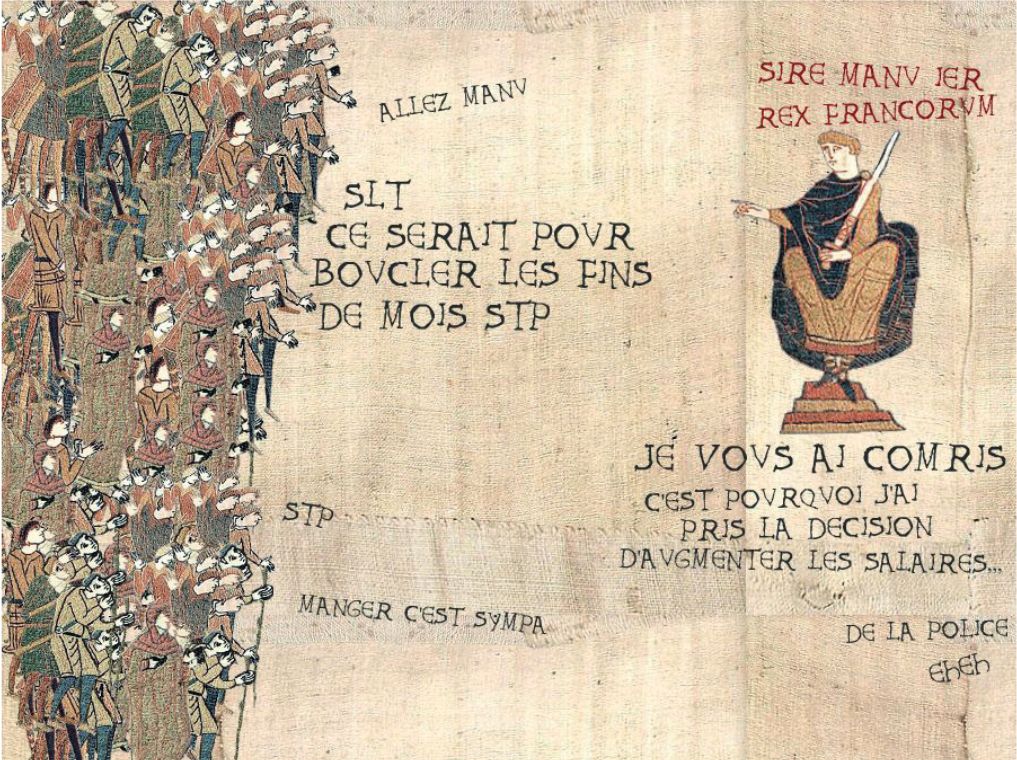 ALLEZ MANV
SLT
CE SERAIT POVR
BOVCLER LES FINS
DE MOIS STP
STP
MANGER C'EST SYMPA
SIRE MANV IER
REX FRANCORVM
JE VOVS AI COMRIS
C'EST POVRQVOI J'AI
PRIS LA DECISION
D'AVGMENTER LES SALAIRES...
DE LA POLICE
EHEH